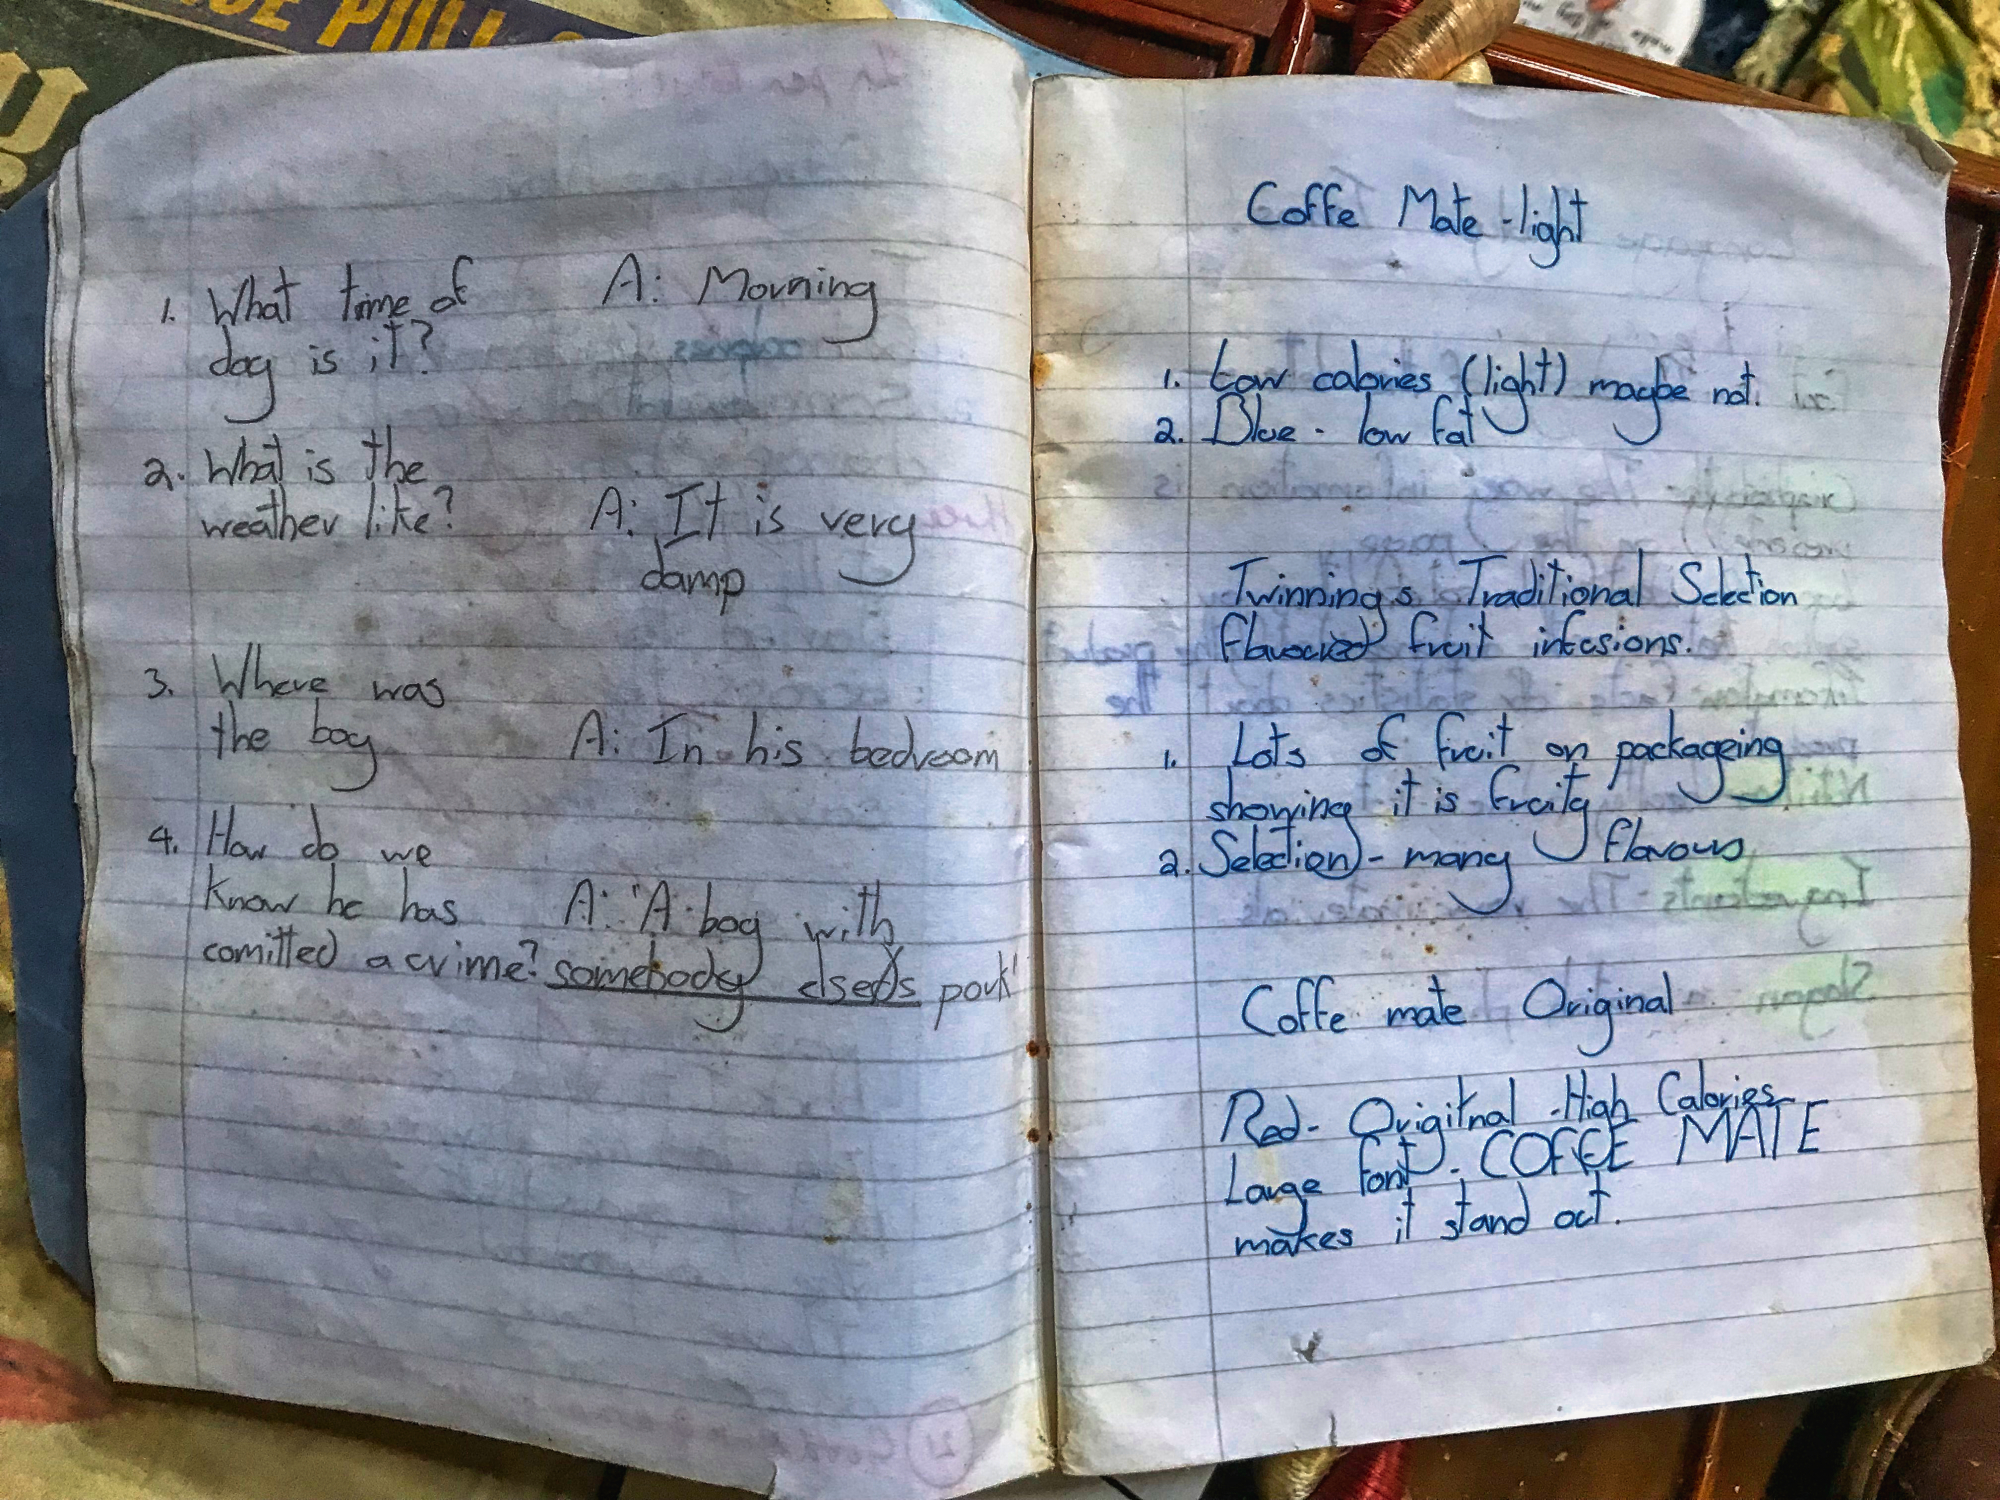 1. What time of
day is it?
A: Morning
2. What is the
weather like?
A: It is very
damp
3. Where was
the boy
A: In his bedroom
4. How do we
know he has
comitted a crime?
A: 'A boy with
somebody else's pork'
Coffe Mate - light
1. Low calories (light) maybe not.
2. Blue - low fat
Twinnings Traditional Selection
flavoured fruit infusions.
1. Lots of fruit on packageing
showing it is fruity
2. Selection - many flavours
Coffe mate Original
Red - Origitnal - High Calories
Large font - COFFEE MATE
makes it stand out.